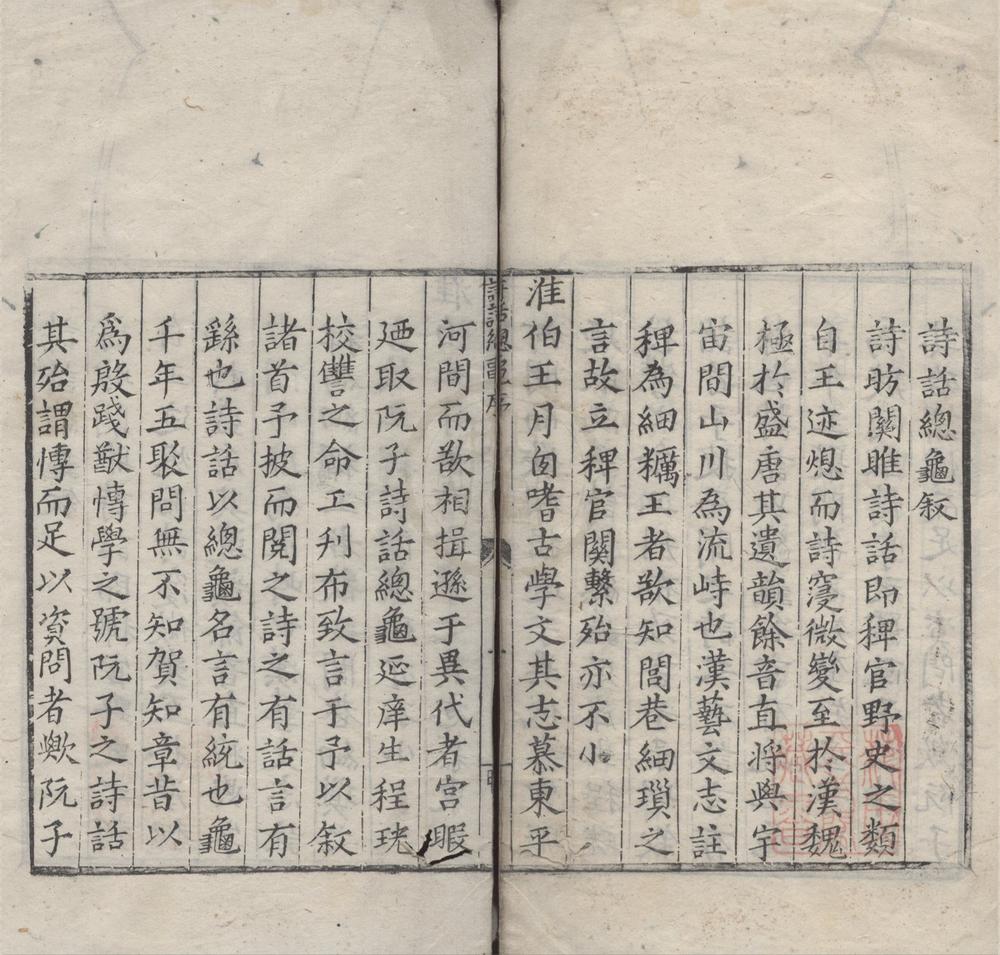 詩話總龜敘
詩昉關雎詩話即稗官野史之類
自王迹熄而詩寖微變至於漢魏
極於盛唐其遺韻餘音直將與宇
宙間山川為流峙也漢藝文志註
稗為細糲王者欲知閭巷細瑣之
言故立稗官關繫殆亦不小
淮伯王月囱嗜古學文其志慕東平
詩話總龜序
一
河間而欲相揖遜于異代者宮暇
廼取阮子詩話總龜延庠生程珖
校讐之命工刋布致言于予以敘
諸首予披而閱之詩之有話言有
繇也詩話以總龜名言有統也龜
千年五聚問無不知賀知章昔以
爲殷踐猷愽學之號阮子之詩話
其殆謂愽而足以資問者歟阮子